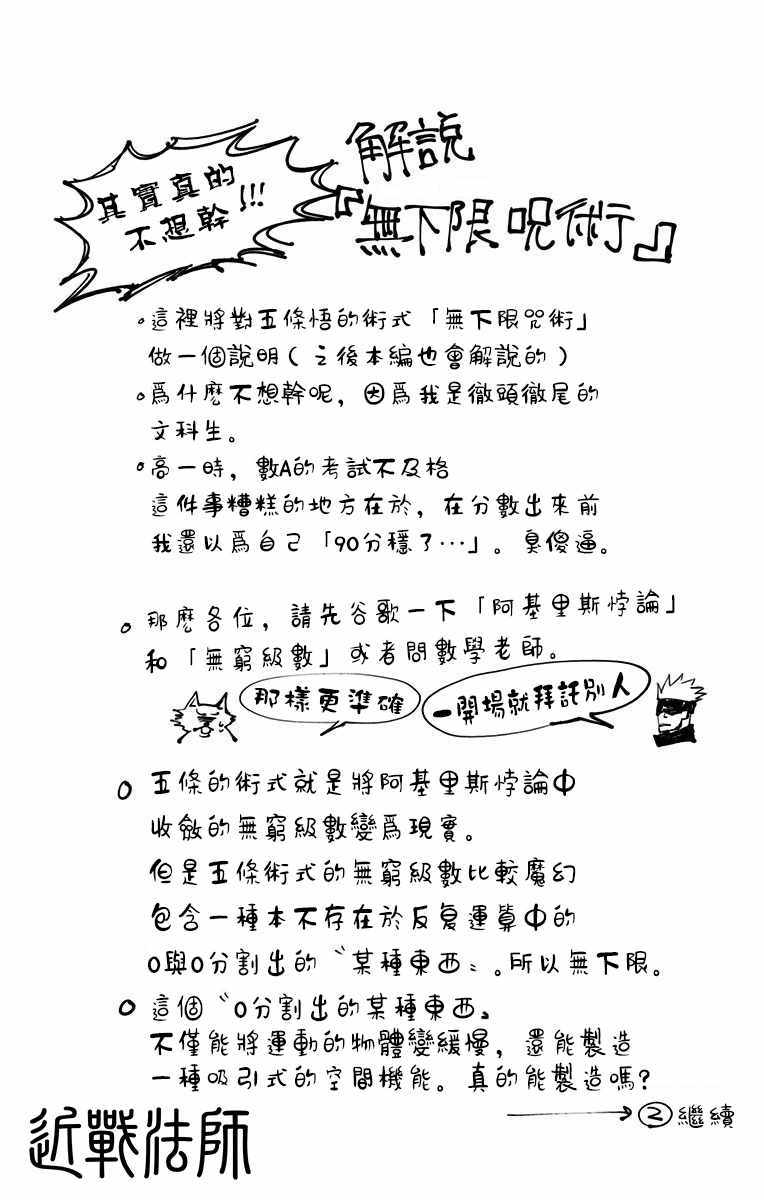 其實真的
不想幹!!!
解說
『無下限呪術』
。這裡將對五條悟的術式「無下限咒術」
做一個說明(之後本編也會解說的)
。爲什麽不想幹呢，因爲我是徹頭徹尾的
文科生。
。高一時，數A的考試不及格
這件事糟糕的地方在於，在分數出來前
我還以爲自己「90分穩了…」。臭傻逼。
。那麽各位，請先谷歌一下「阿基里斯悖論」
和「無窮級數」或者問數學老師。
那樣更準確
一開場就拜託別人
。五條的術式就是將阿基里斯悖論中
收斂的無窮級數變爲現實。
但是五條術式的無窮級數比較魔幻
包含一種本不存在於反复運算中的
0與0分割出的〝某種東西〟。所以無下限。
。這個〝0分割出的某種東西〟
不僅能將運動的物體變緩慢，還能製造
一種吸引式的空間機能。真的能製造嗎?
→②繼續
近戰法師